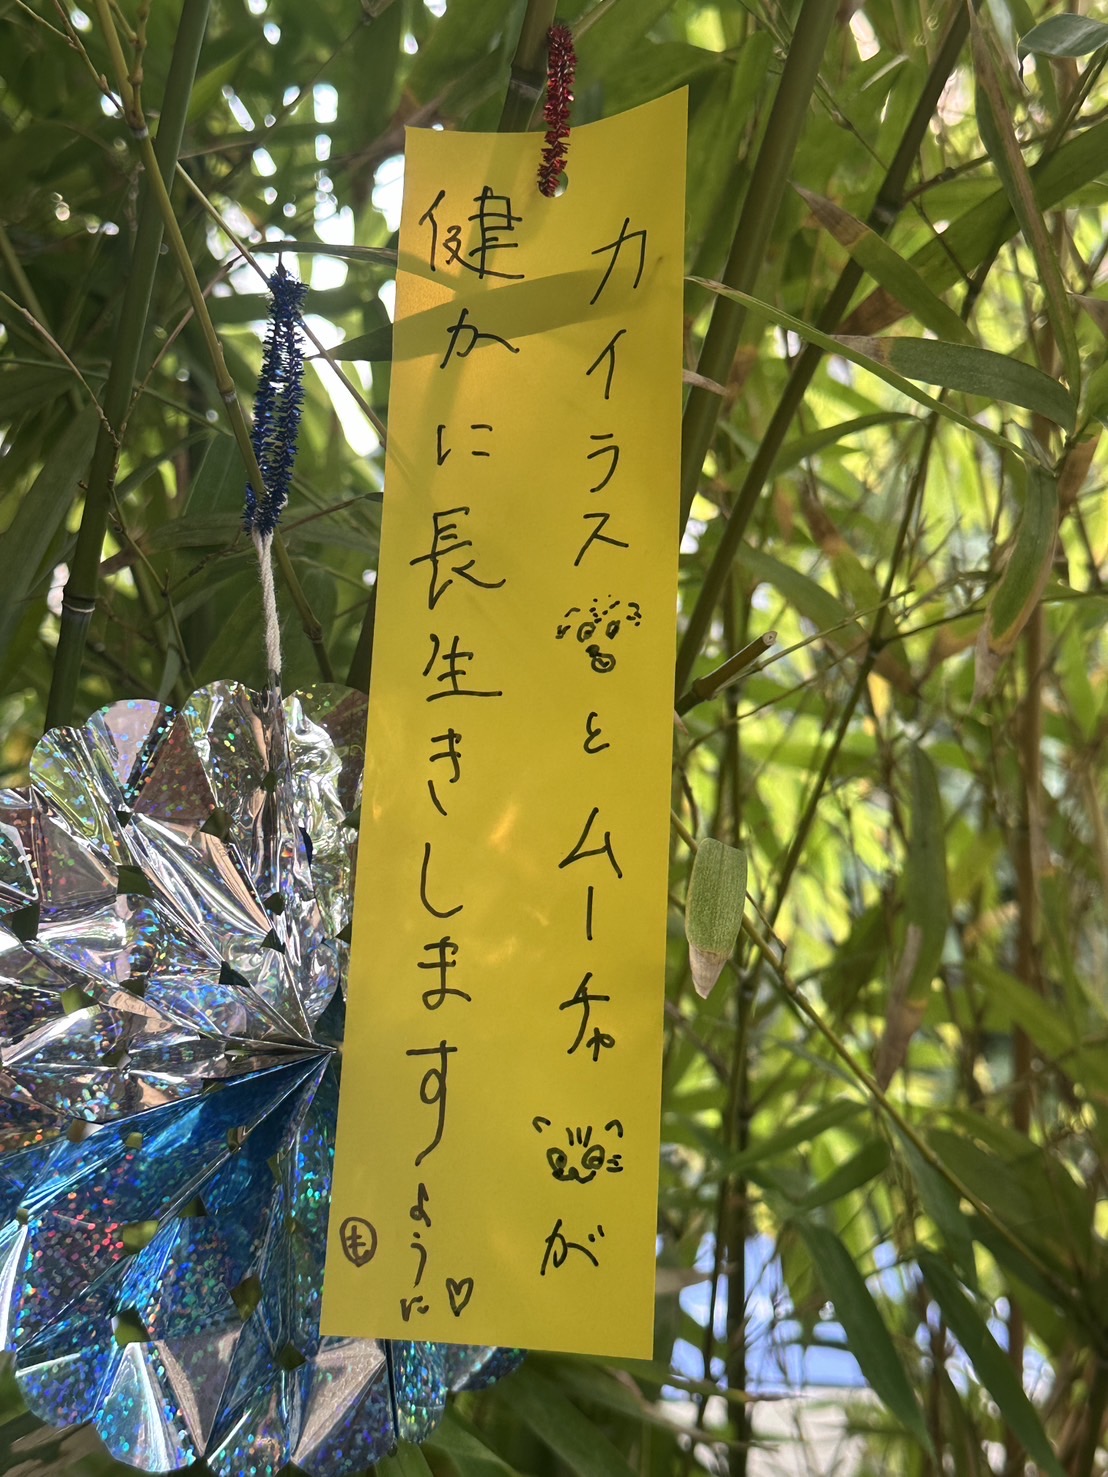 カイラスとムーチャが
健かに長生きしますように♡
も